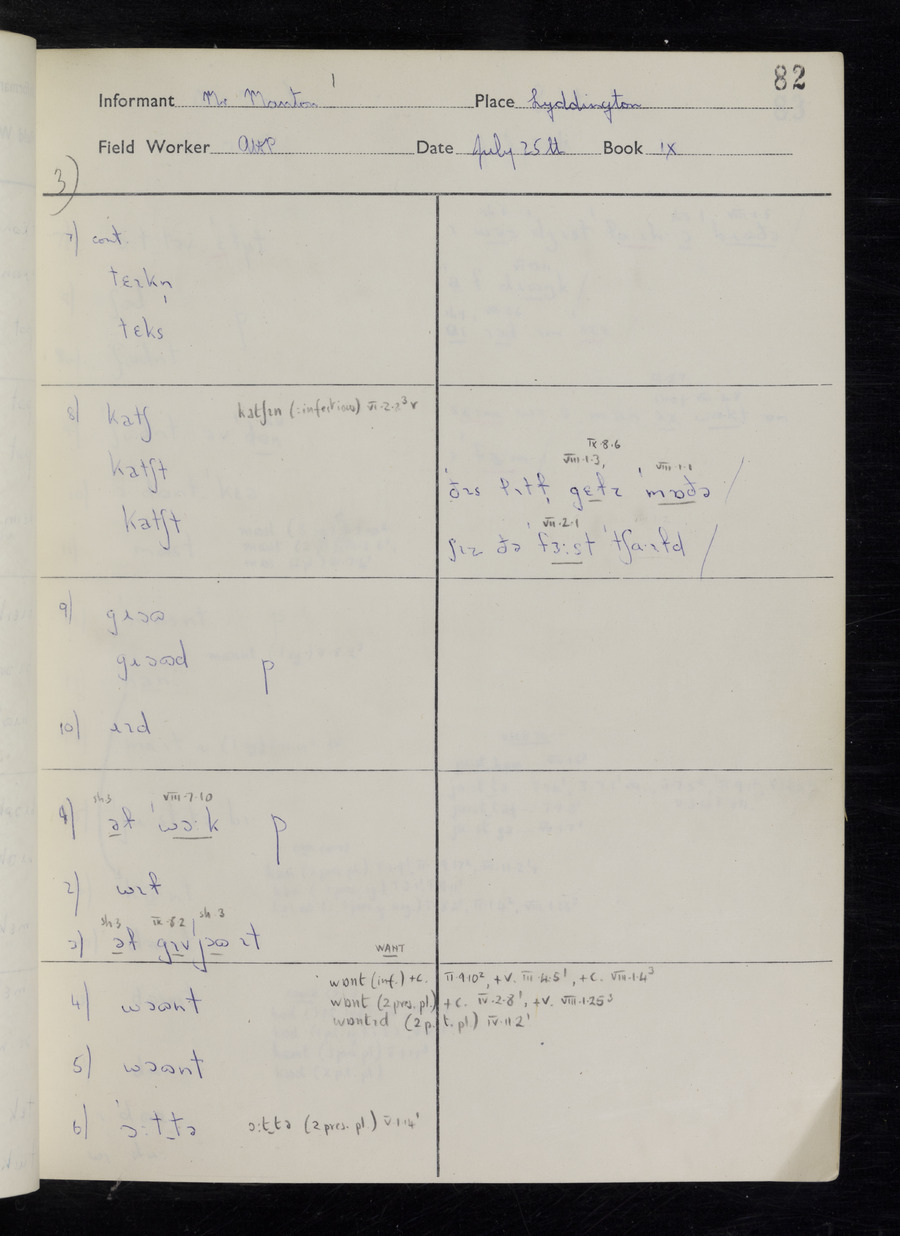 82
Informant Mr Manton Place Lyddington
Field Worker Date July 25th Book IX
3)
7) cont.
tɛɪkn̩
teks
8) katʃ katʃɪn (=infectious) VI·2·2³ v
katʃt
IX·8·6
VIII·1·3, VIII·1·1
ðɪs lɪtɫ gɛɫz ˈmɒðə /
katʃt
VII·2·1
ʃɪz ðə ˈfɜːst ˈtʃaɪɫd /
9) gɪɔə
gɪɔəd p
10) ɪɪd
sh3 VIII·7·10
1) əɫ ˈwəːk p
2) wɪɫ
sh3 IX·8·2 sh·3
3) əɫ gɪv jəə ɪt
WANT
wɒnt (inf.) +C. II·9·10², +V. III·4·5¹, +C. VIII·1·4³
4) wɔənt wɒnt (2 pres. pl.) +C. IV·2·8¹, +V. VIII·1·25³
wɒntɪd (2 p. t. pl.) IV·11·2¹
5) wɔənt
6) ˈɔːt̬tə ɔːt̬tə (2 pres. pl) V·1·4¹